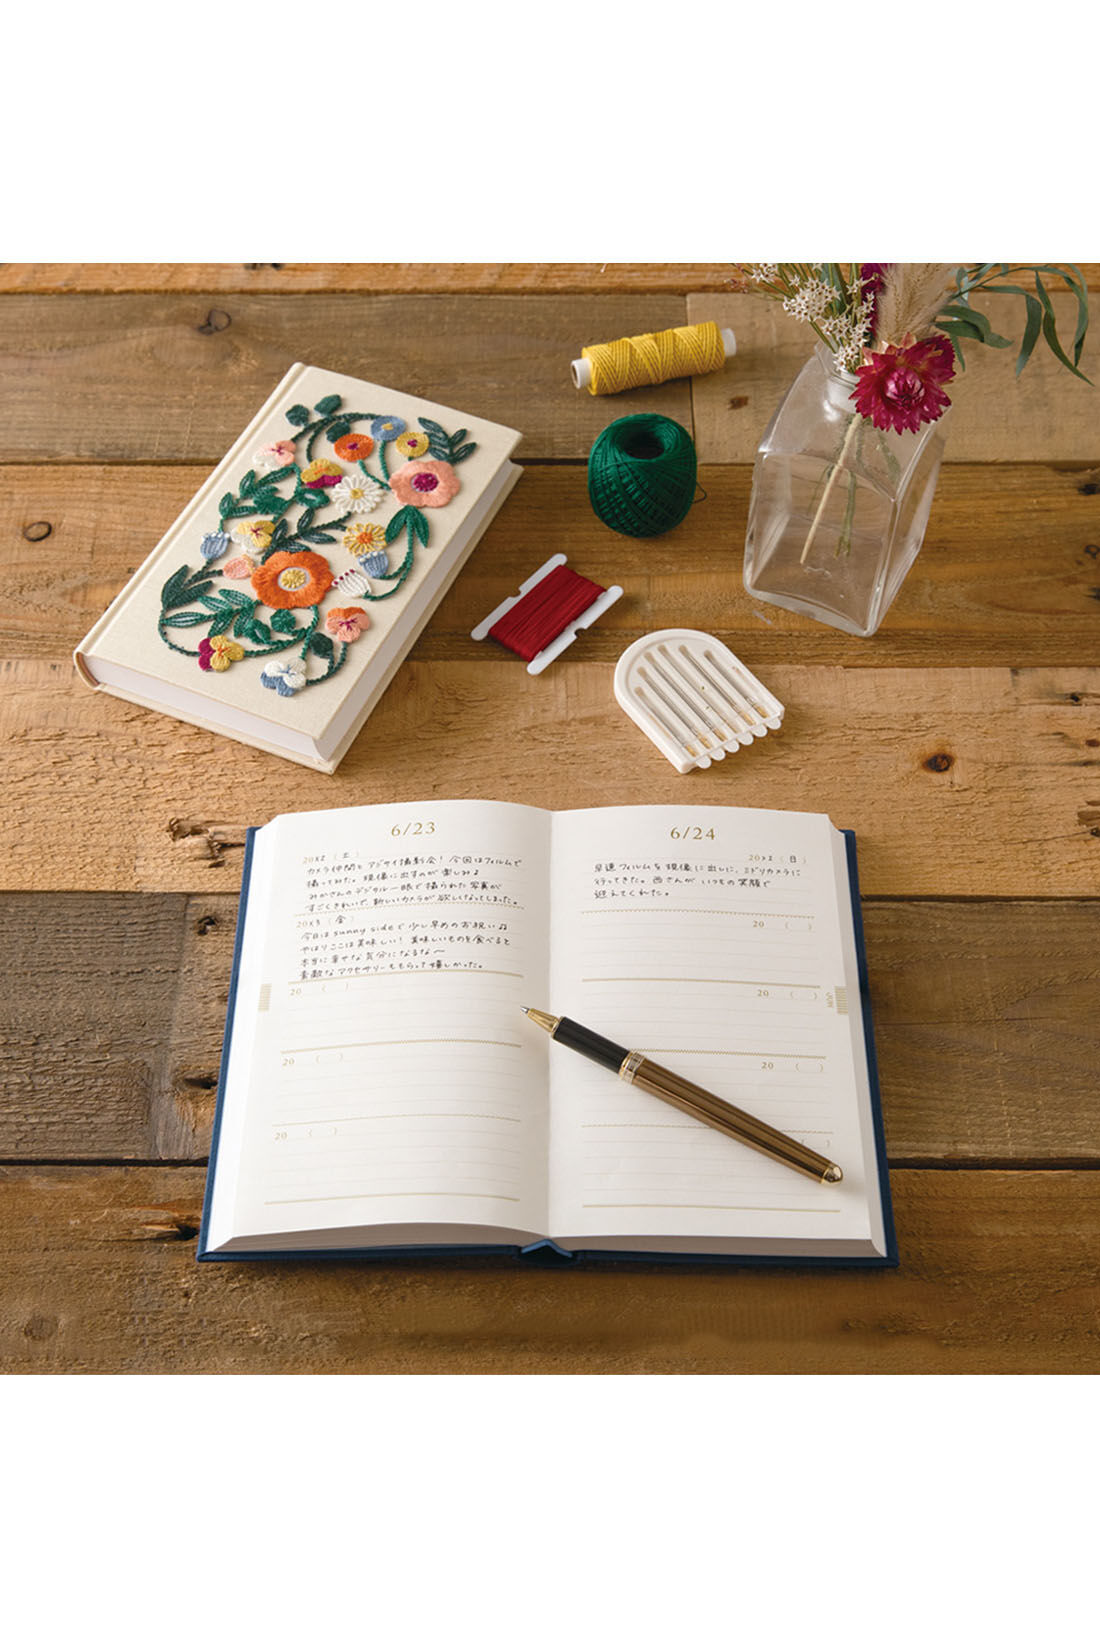 6/23
20X2 (土)
カメラ仲間とアジサイ撮影会!今回はフィルムで
撮ってみた。現像に出すのが楽しみ♪
みかさんのデジタル一眼で撮られた写真が
すごくきれいで、新しいカメラが欲しくなってしまった。
20X3 (金)
今日はsunny sideで少し早めのお祝い♫
やはりここは美味しい!美味しいものを食べると
本当に幸せな気分になるな〜
素敵なアクセサリーももらって嬉しかった。
20 ( )
20 ( )
20 ( )
6/24
20X2 (日)
早速フィルムを現像に出しに、ミドリカメラに
行ってきた。西さんがいつもの笑顔で
迎えてくれた。
20 ( )
20 ( )
20 ( )
( )
JUN